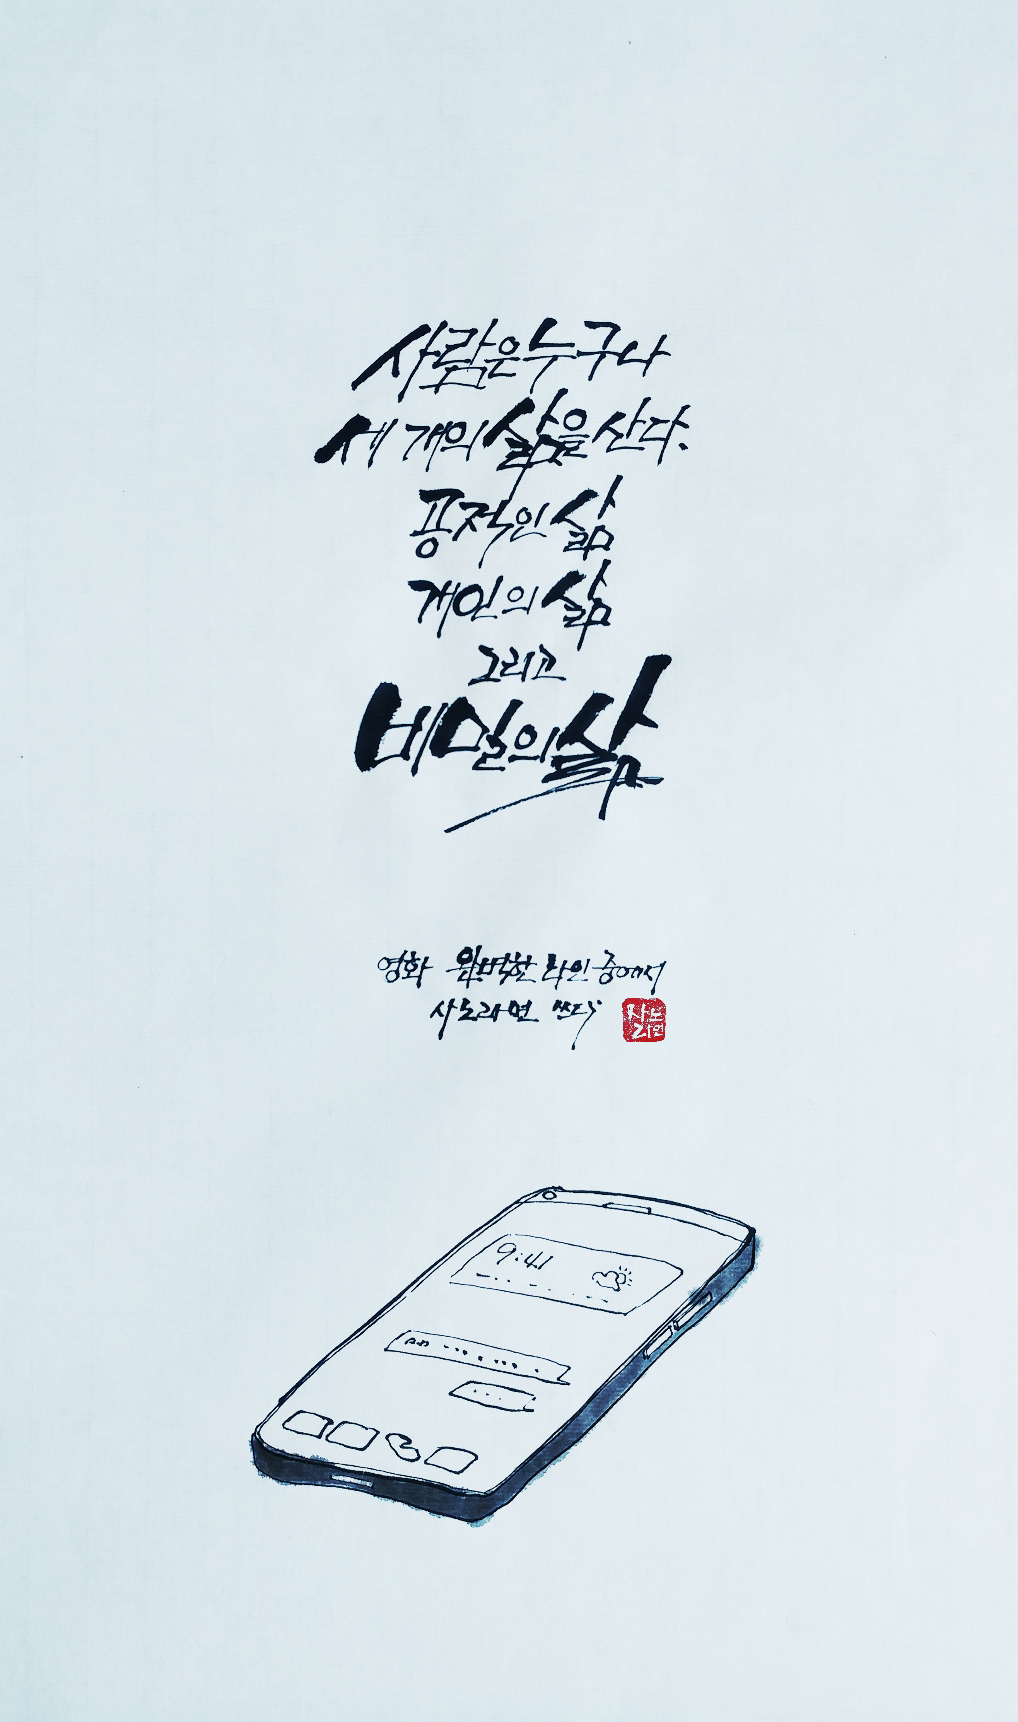 사람은 누구나
세 개의 삶을 산다.
공적인 삶
개인의 삶
그리고
비밀의 삶
영화 완벽한 타인 중에서
사노라면 쓰다
사노
라면
9:41